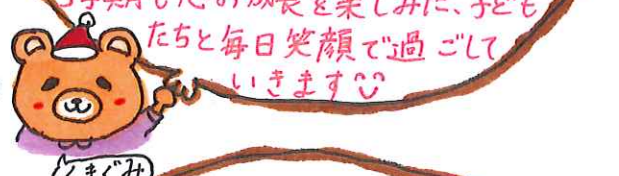 3学期も心の成長を楽しみに、子ども
たちと毎日笑顔で過ごして
いきます
くまぐみ